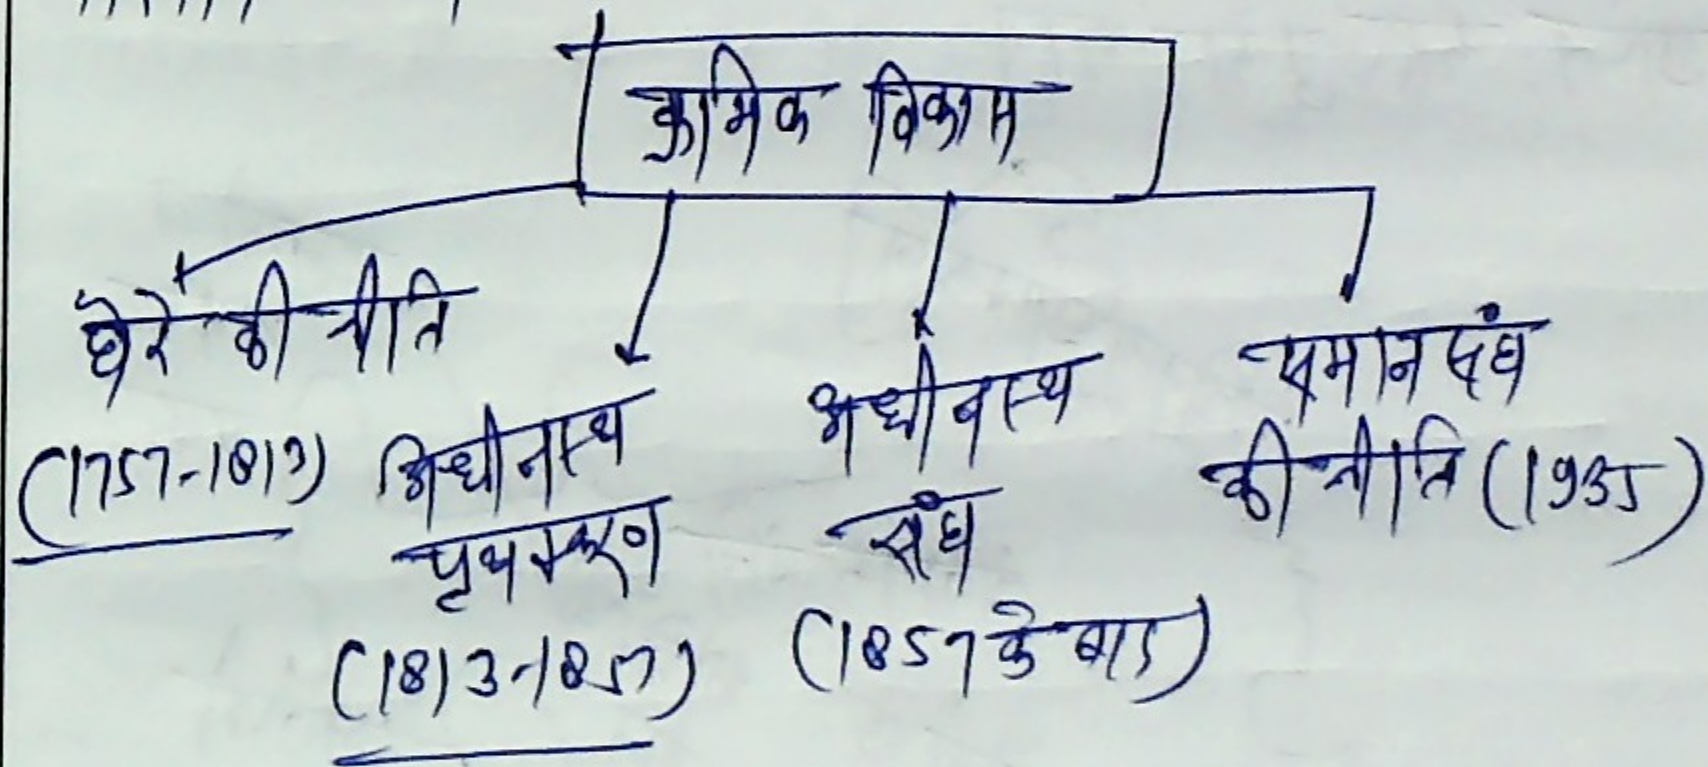 क्रमिक विकास
घेरे की नीति
(1757-1813)
अधीनस्थ
पृथक्करण
(1813-1857)
अधीनस्थ
संघ
(1857 के बाद)
समान संघ
की नीति (1935)